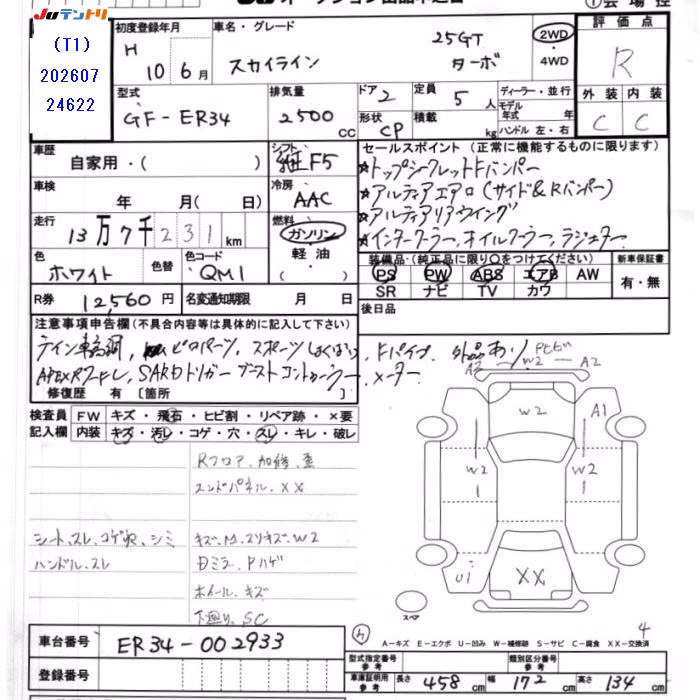 JUテントリ
(T1)
202607
24622
初度登録年月
H
10 6月
車名・グレード
スカイライン
25GT
ターボ
2WD
4WD
評価点
R
外装 内装
C C
型式
GF-ER34
排気量
2500 CC
ドア 2
定員 5 人
形状 CP
積載 kg
ディーラー・並行
モデル年式 年
ハンドル 左・右
車歴
自家用・( )
シフト F5
車検
年 月( 日)
冷房
AAC
走行
13万7千231km
燃料
ガソリン
軽油
( )
色
ホワイト
色替
色コード
QM1
R券 12,560円
名変通知期限 月 日
セールスポイント(正常に機能するものに限ります)
★トップシークレットFバンパー
★アルティアエアロ(サイド&Rバンパー)
★アルティアリアウイング
★インタークーラー、オイルクーラー、ラジエター
装備品(純正品に限り○をつけてください)
PS PW ABS エアB AW
SR ナビ TV カワ
新車保証書
有・無
後日品
注意事項申告欄(不具合内容等は具体的に記入して下さい)
テイン車高調, ピロアーツ, スポーツ Fパイプ, 外品あり
APEXRフレ, SARDトリガーブーストコントローラー, メーター
修復歴 有〔箇所 〕
検査員記入欄
FW キズ・飛石・ヒビ割・リペア跡・X要
内装 キズ・汚レ・コゲ・穴・スレ・キレ・破レ
Rフロア、加修、歪
エンドパネル、XX
シート、スレ、コゲ穴、シミ
キズ、凹、スリキズ、W2
ハンドル、スレ
ドミラー、Pハゲ
ホイール、キズ
下廻り、SC
A2 W2 A2
W2
A1
W2
W2
U1
XX
スペア
4
A-キズ E-エクボ U-凹み W-補修跡 S-サビ C-腐食 XX-交換済
車台番号 ER34-002933
登録番号
型式指定番号参考
類別区分番号参考
車庫証明用参考 長さ 458cm 幅 172cm 高さ 134cm